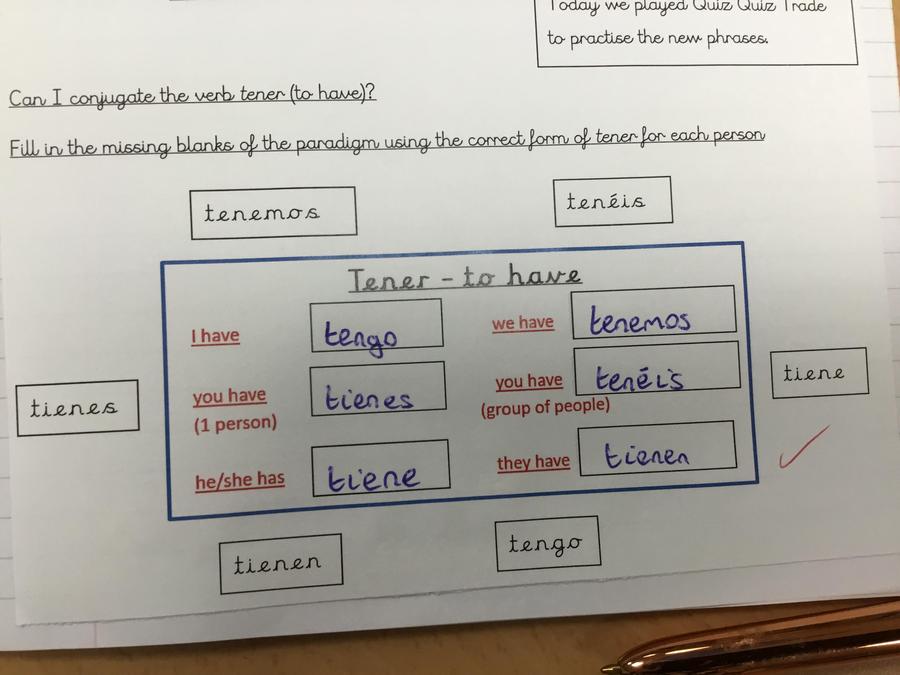 Today we played Quiz Quiz Trade
to practise the new phrases.
Can I conjugate the verb tener (to have)?
Fill in the missing blanks of the paradigm using the correct form of tener for each person
tenemos
tenéis
Tener - to have
I have
tengo
we have
tenemos
you have
(1 person)
tienes
you have
(group of people)
tenéis
he/she has
tiene
they have
tienen
tienes
tiene
tienen
tengo